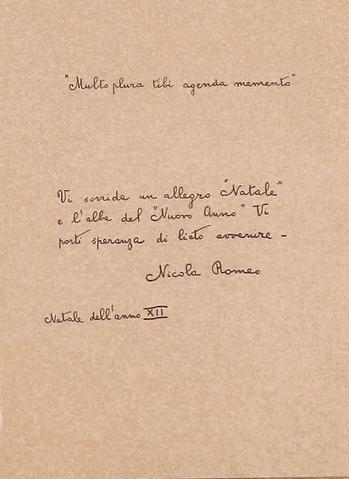 "Multo plura tibi agenda memento"
Vi sorrida un allegro "Natale"
e l'alba del "Nuovo Anno" Vi
porti speranza di lieto avvenire -
Nicola Romeo
Natale dell'anno XII